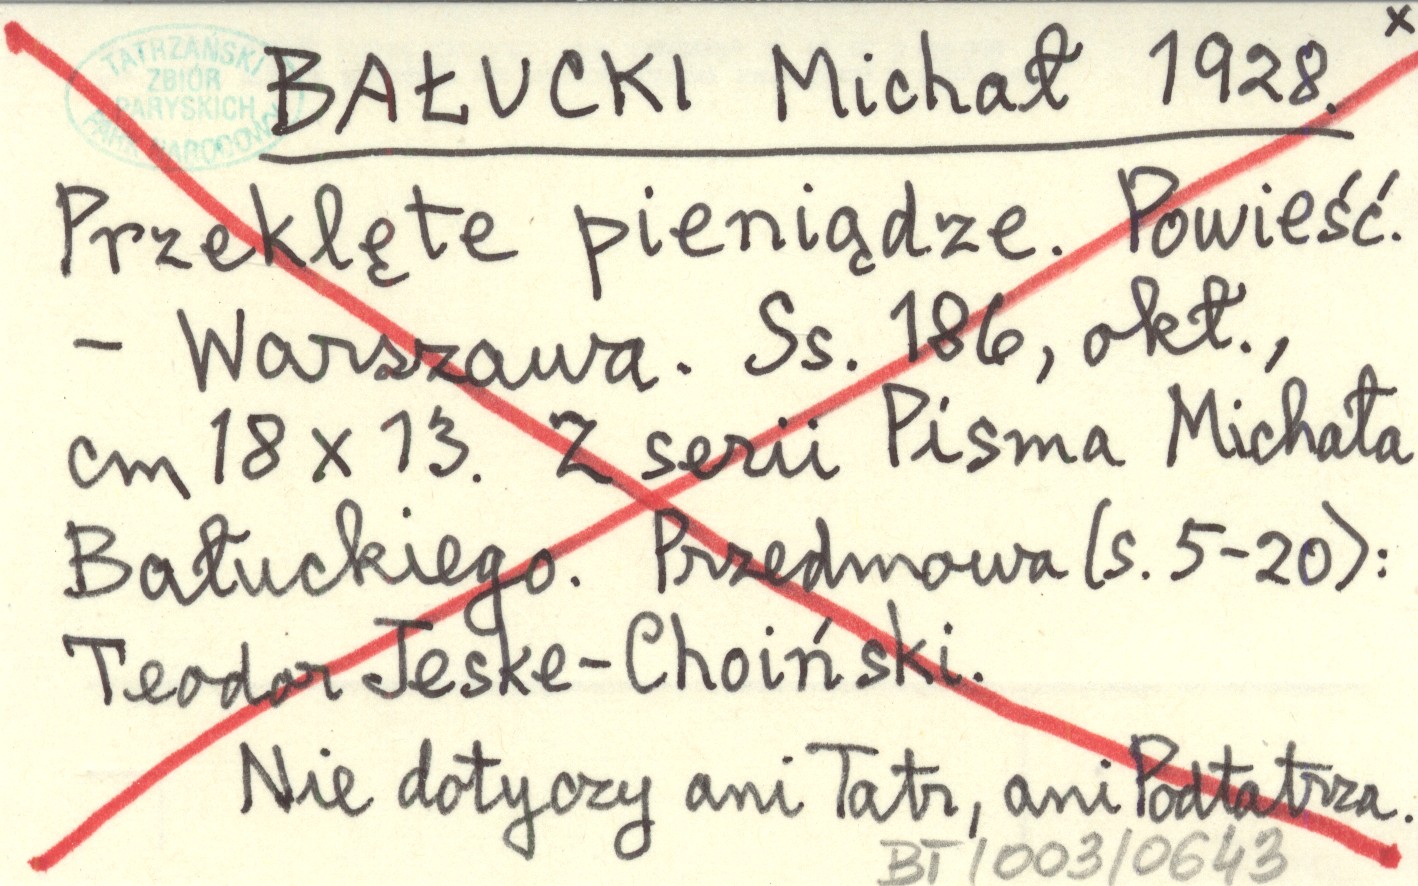 x
TATRZAŃSKI
ZBIÓR
PARYSKICH
PARK NARODOWY
BAŁUCKI Michał 1928.
Przeklęte pieniądze. Powieść.
- Warszawa. Ss. 186, okł.,
cm 18 x 13. Z serii Pisma Michała
Bałuckiego. Przedmowa (s. 5-20):
Teodor Jeske-Choiński.
Nie dotyczy ani Tatr, ani Podtatrza.
BT/003/0643